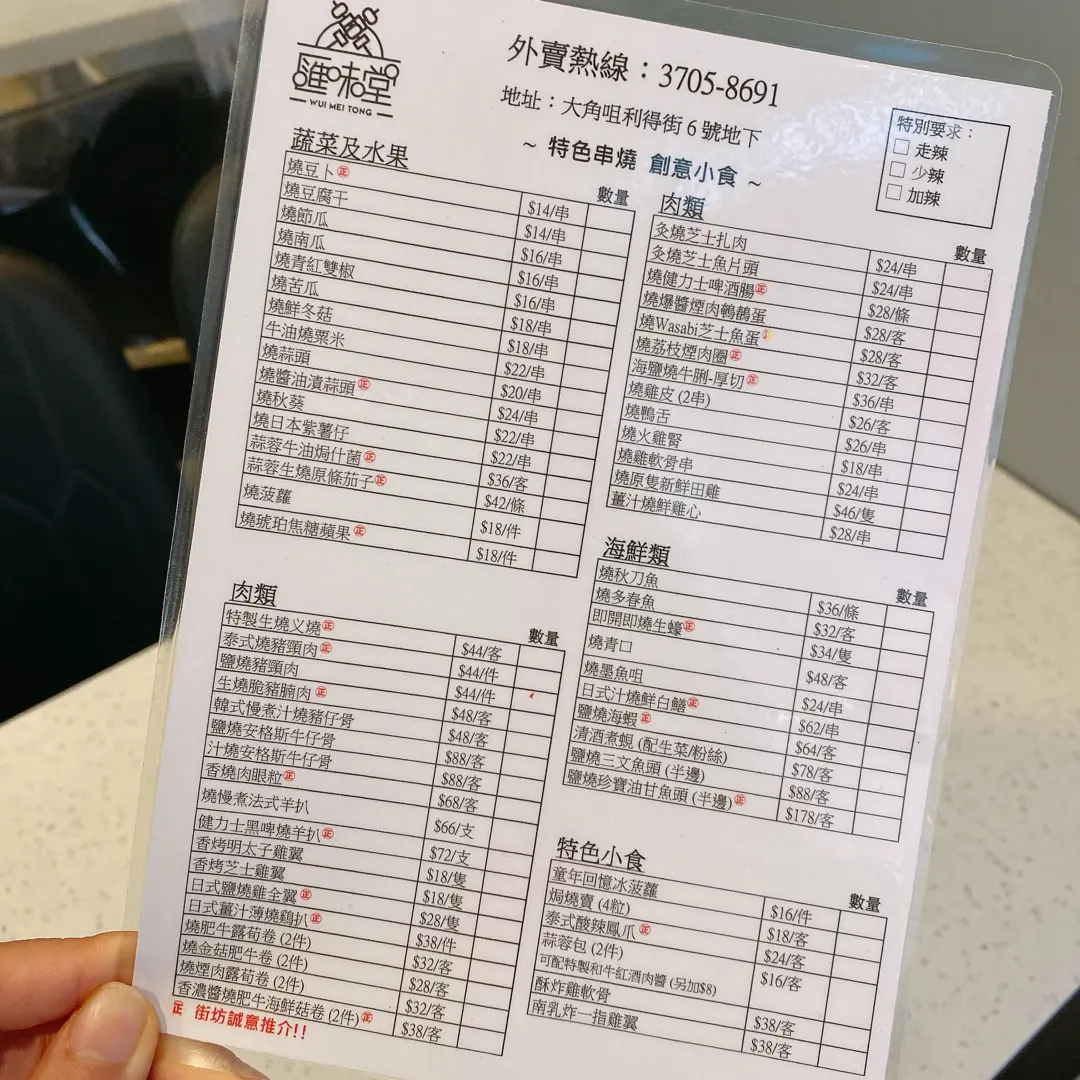 匯味堂
WUI MEI TONG
外賣熱線：3705-8691
地址：大角咀利得街6號地下
~ 特色串燒 創意小食 ~
特別要求：
走辣
少辣
加辣
蔬菜及水果 數量
燒豆卜㊣ $14/串
燒豆腐干 $14/串
燒節瓜 $16/串
燒南瓜 $16/串
燒青紅雙椒 $16/串
燒苦瓜 $18/串
燒鮮冬菇 $18/串
牛油燒粟米 $22/串
燒蒜頭 $20/串
燒醬油漬蒜頭㊣ $24/串
燒秋葵 $22/串
燒日本紫薯仔 $22/串
蒜蓉牛油焗什菌㊣ $36/客
蒜蓉生燒原條茄子㊣ $42/條
燒菠蘿 $18/件
燒琥珀焦糖蘋果㊣ $18/件
肉類 數量
特製生燒义燒㊣ $44/客
泰式燒豬頸肉㊣ $44/件
鹽燒豬頸肉 $44/件
生燒脆豬腩肉㊣ $48/客
韓式慢煮汁燒豬仔骨 $48/客
鹽燒安格斯牛仔骨 $88/客
汁燒安格斯牛仔骨 $88/客
香燒肉眼粒㊣ $68/客
燒慢煮法式羊扒 $66/支
健力士黑啤燒羊扒㊣ $72/支
香烤明太子雞翼 $18/隻
香烤芝士雞翼 $18/隻
日式鹽燒雞全翼㊣ $28/隻
日式薑汁薄燒鷄扒㊣ $38/件
燒肥牛露荀卷 (2件) $32/客
燒金菇肥牛卷 (2件) $28/客
燒煙肉露荀卷 (2件) $32/客
香濃醬燒肥牛海鮮菇卷 (2件)㊣ $38/客
㊣ 街坊誠意推介!!
肉類 數量
炙燒芝士扎肉 $24/串
炙燒芝士魚片頭 $24/串
燒健力士啤酒腸㊣ $28/條
燒爆醬煙肉鵪鶉蛋 $28/客
燒Wasabi芝士魚蛋 $28/客
燒荔枝煙肉圈㊣ $32/客
海鹽燒牛脷-厚切㊣ $36/串
燒雞皮 (2串) $26/客
燒鴨舌 $26/串
燒火雞腎 $18/串
燒雞軟骨串 $24/串
燒原隻新鮮田雞 $46/隻
薑汁燒鮮雞心 $28/串
海鮮類 數量
燒秋刀魚 $36/條
燒多春魚 $32/客
即開即燒生蠔㊣ $34/隻
燒青口 $48/客
燒墨魚咀 $24/串
日式汁燒鮮白鱔㊣ $62/串
鹽燒海蝦㊣ $64/客
清酒煮蜆 (配生菜/粉絲) $78/客
鹽燒三文魚頭 (半邊) $88/客
鹽燒珍寶油甘魚頭 (半邊)㊣ $178/客
特色小食 數量
童年回憶冰菠蘿 $16/件
焗燒賣 (4粒) $18/客
泰式酸辣鳳爪㊣ $24/客
蒜蓉包 (2件) $16/客
可配特製和牛紅酒肉醬 (另加$8)
酥炸雞軟骨 $38/客
南乳炸一指雞翼 $38/客